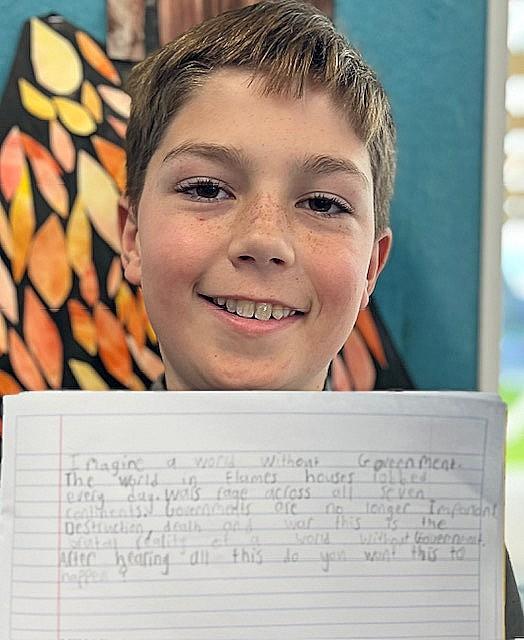 Imagine a world without Government.
The world in Flames houses robbed
every day. Wars rage across all seven
continents. Governments are no longer Important
Destruction, death and war this is the
brutal reality of a world without Government.
After hearing all this do you want this to
happen?